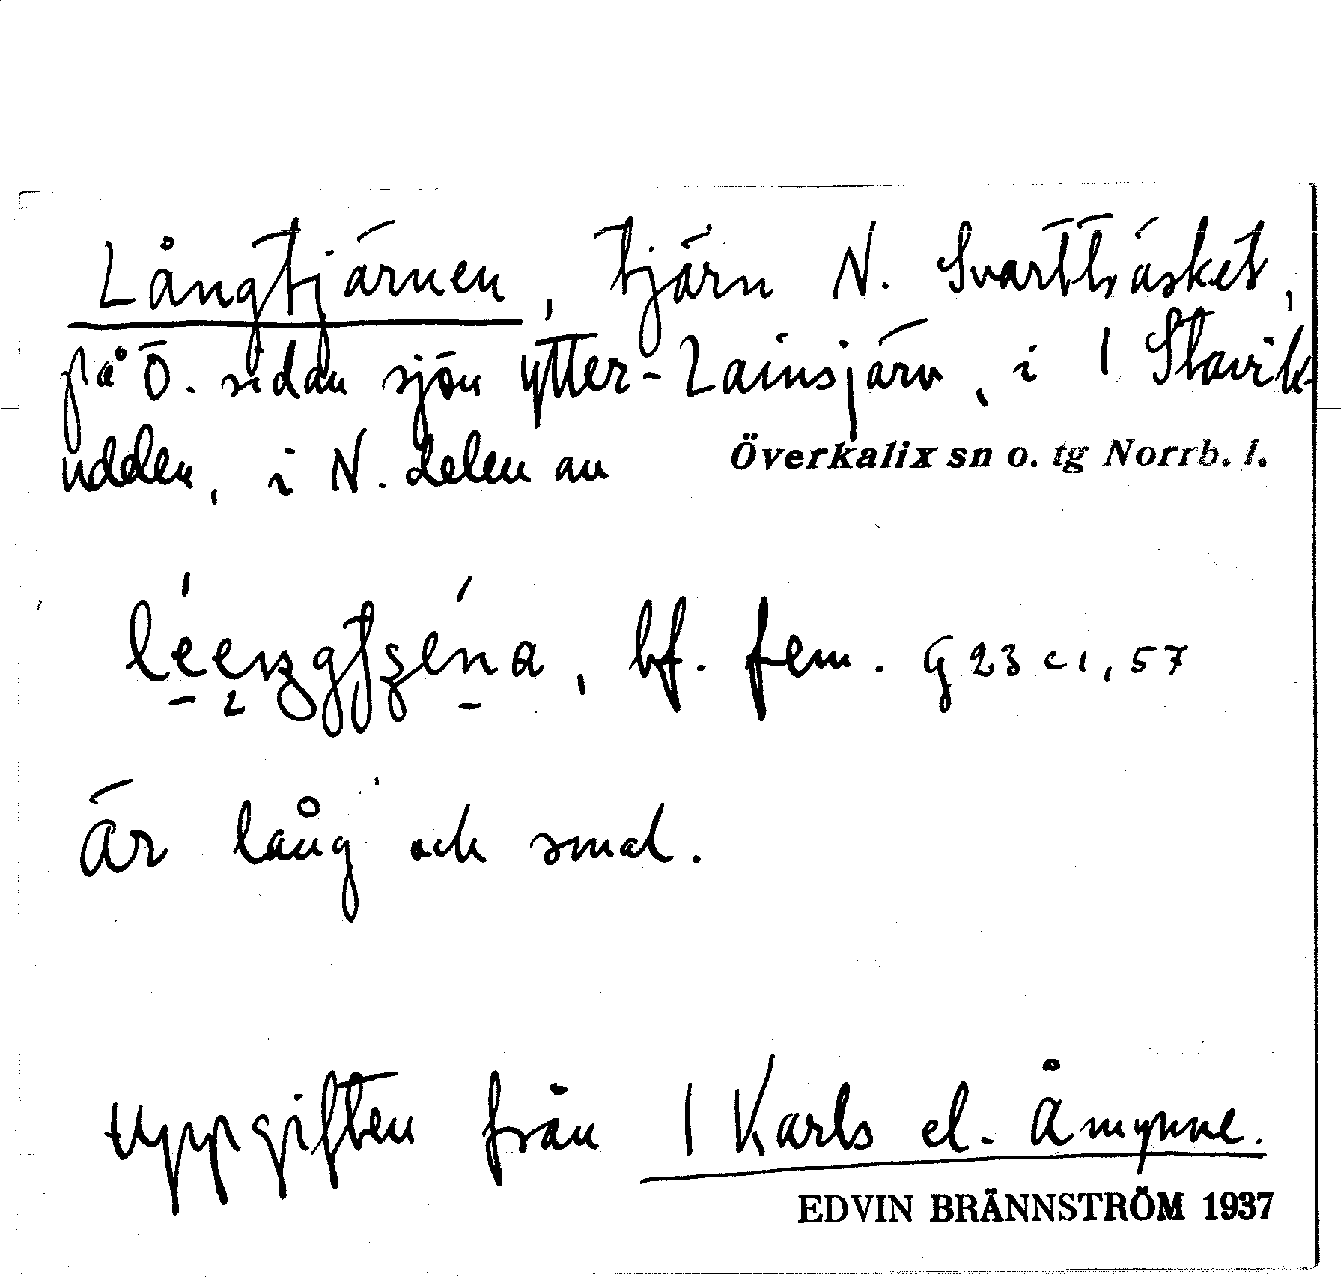 Långtjärnen, tjärn N. Svartträsket,
på Ö. sidan sjön Ytter-Lainsjärv, i 1 Slavik-
udden, i N. delen av Överkalix sn o. tg Norrb. l.
bf. fem. G 23 c 1, 57
Är lång och smal.
Uppgiften från 1 Karls el. Åmynne.
EDVIN BRÄNNSTRÖM 1937